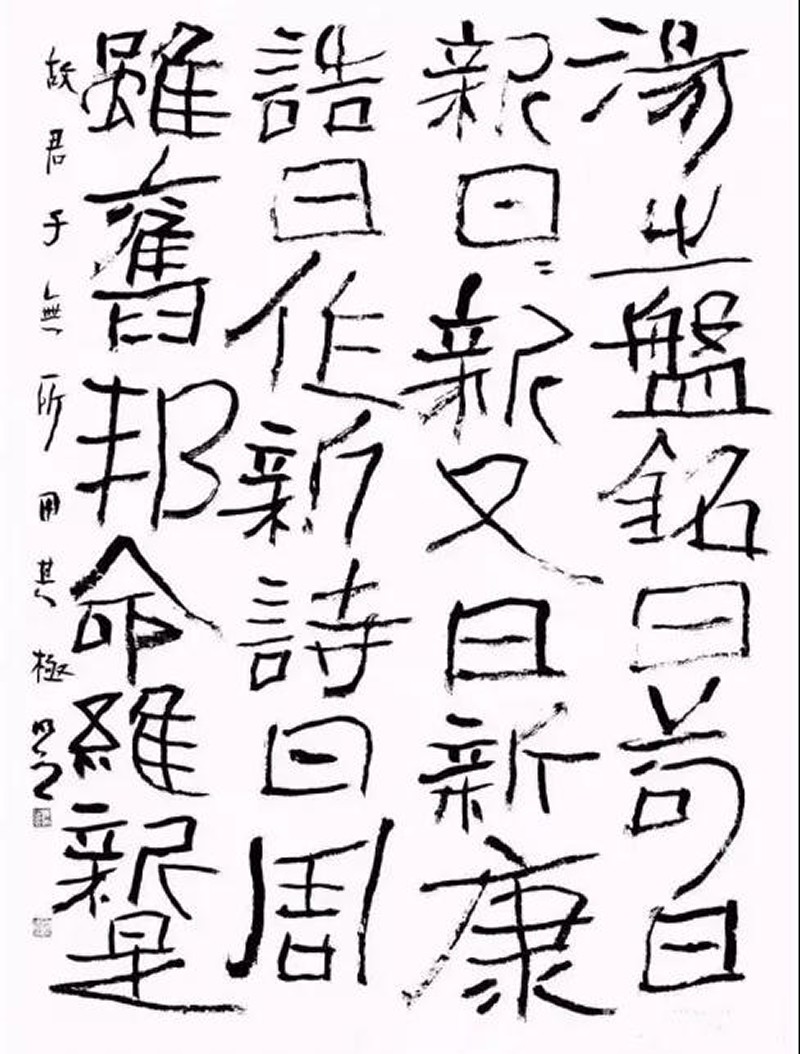 湯之盤銘曰苟日
新日〻新又日新康
誥曰作新詩曰周
雖舊邦命維新是
故君子無所用其極